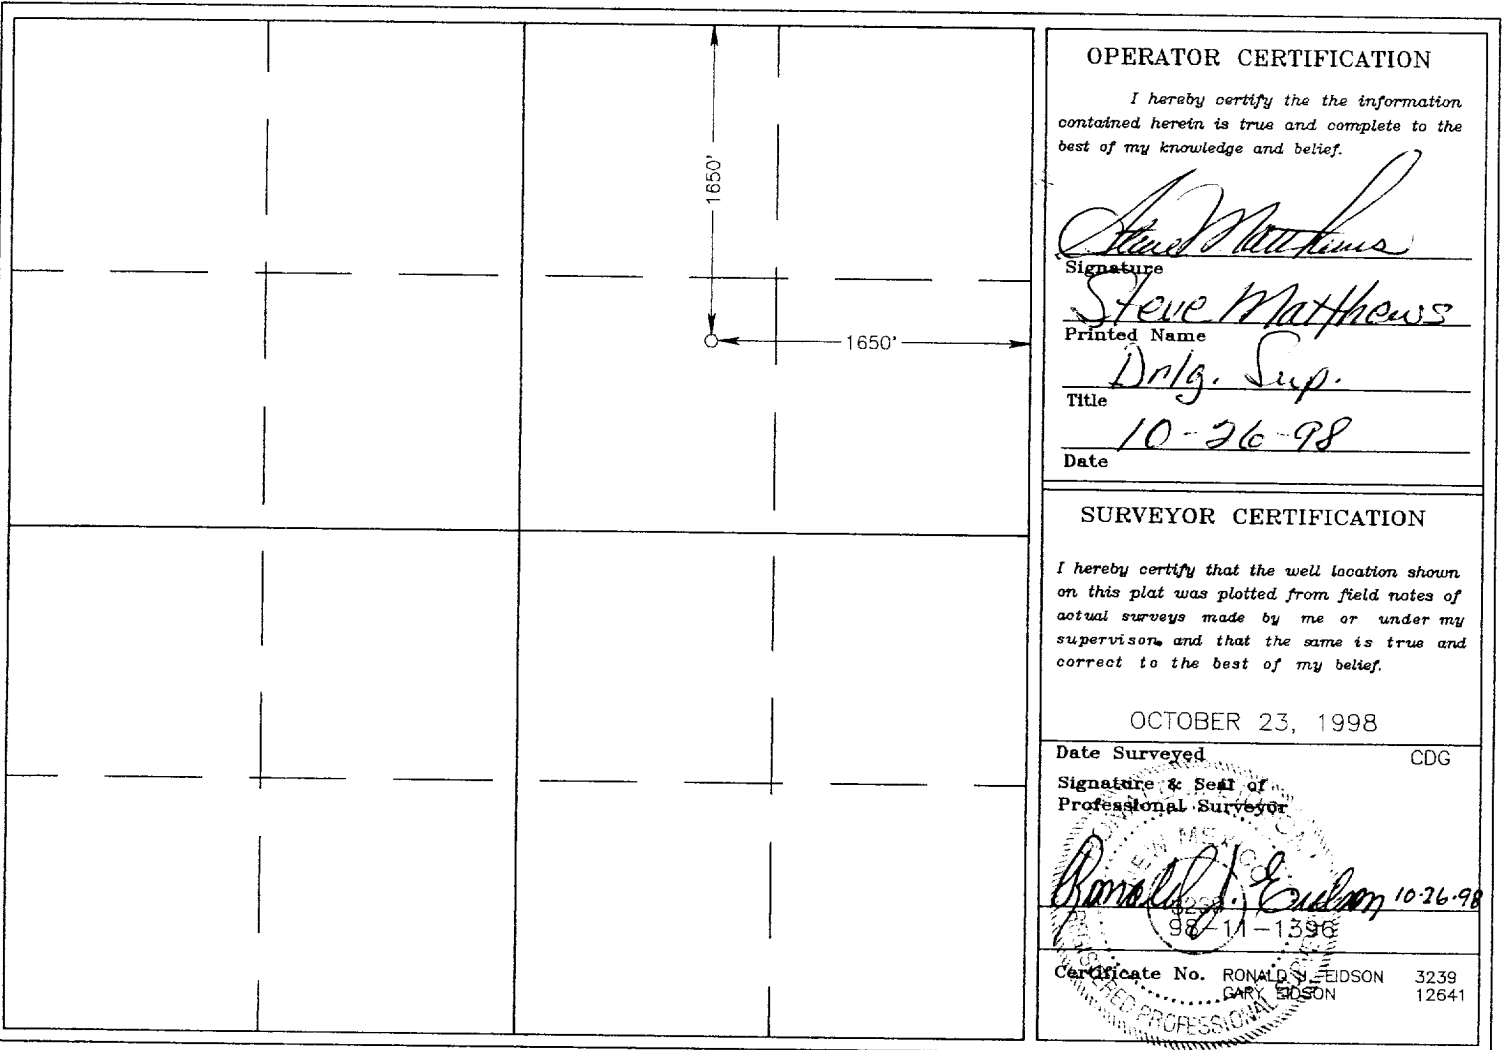 1650'
1650'
OPERATOR CERTIFICATION
I hereby certify the the information
contained herein is true and complete to the
best of my knowledge and belief.
Steve Matthews
Signature
Steve Matthews
Printed Name
Drlg. Sup.
Title
10-26-98
Date
SURVEYOR CERTIFICATION
I hereby certify that the well location shown
on this plat was plotted from field notes of
actual surveys made by me or under my
supervison, and that the same is true and
correct to the best of my belief.
OCTOBER 23, 1998
Date Surveyed CDG
Signature & Seal of
Professional Surveyor
NEW MEXICO
Ronald J. Eidson 10-26-98
3239
98-11-1396
Certificate No. RONALD J. EIDSON 3239
GARY EIDSON 12641
REGISTERED PROFESSIONAL